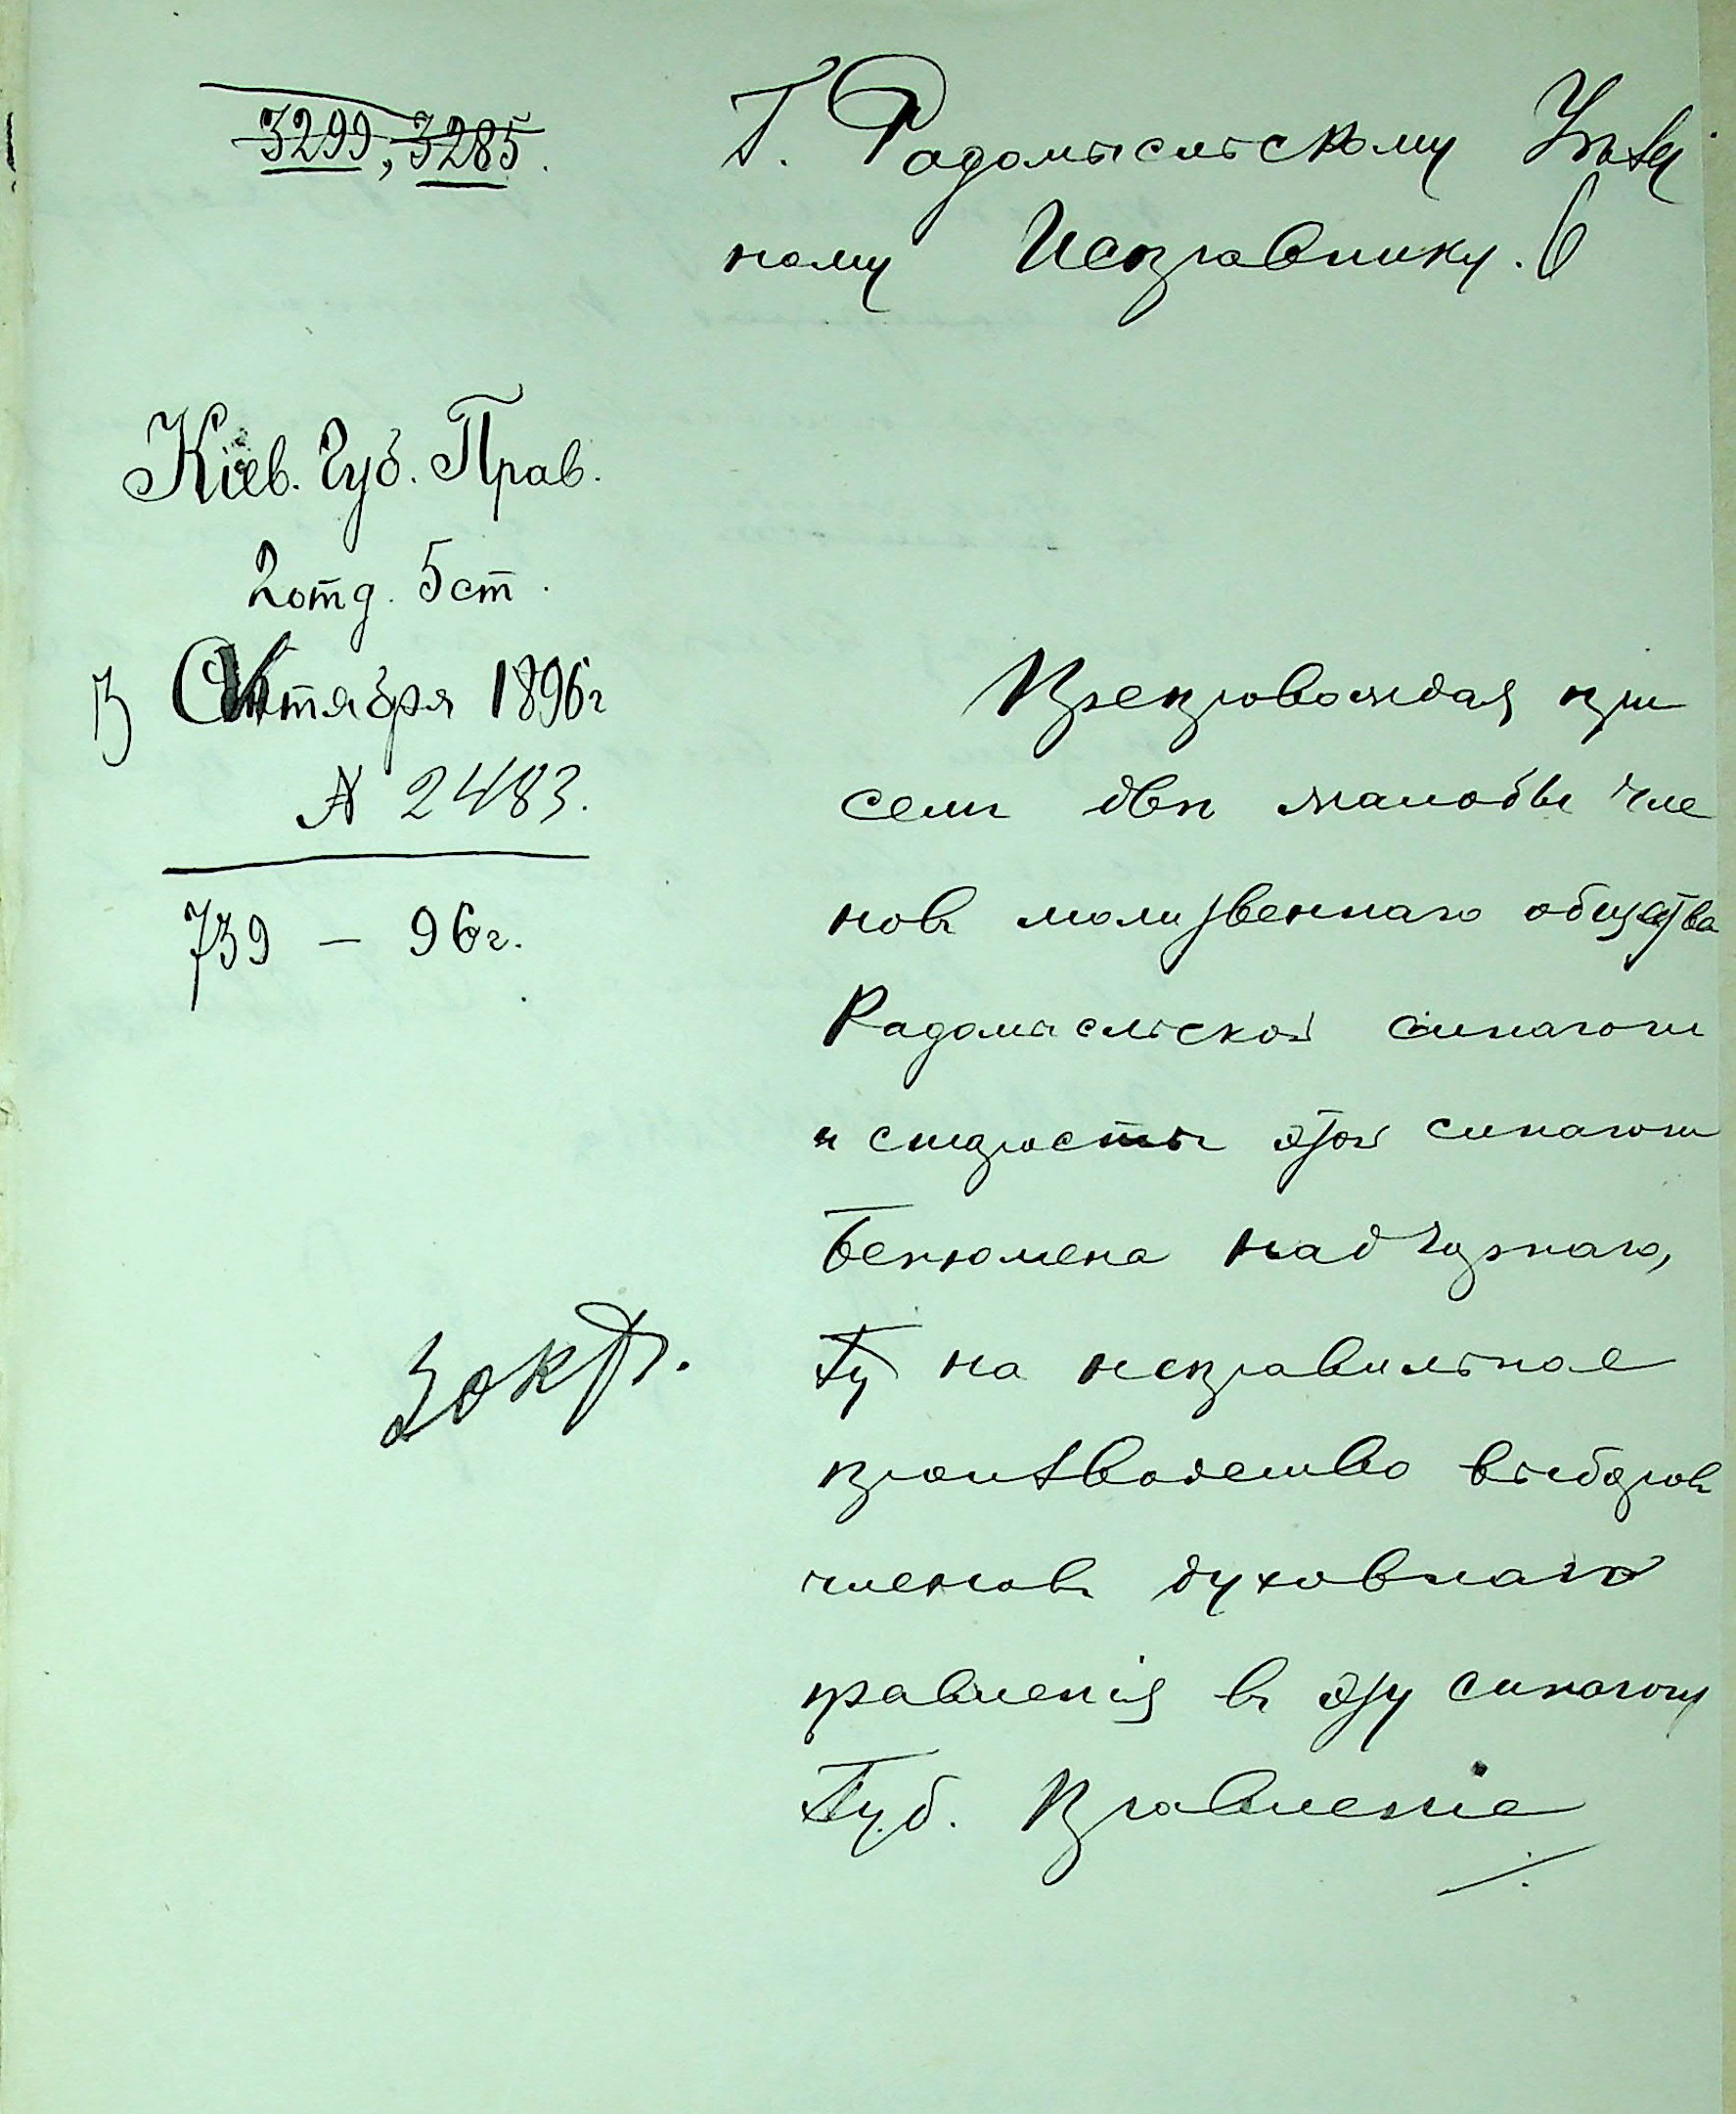 3299, 3285.
Г. Радомысльскому Уѣзд
ному Исправнику.
Кіев. Губ. Прав.
2 отд. 5 ст.
Октября 1896 г
№ 2483.
739 – 96 г.
Препровождая при
семъ двѣ жалобы чле
новъ молитвеннаго общества
Радомысльской синагоги
и старосты этой синагоги
Бенюмена
на неправильное
производство выборовъ
членовъ духовнаго
правленія въ эту синагогу
Губ. Правленіе